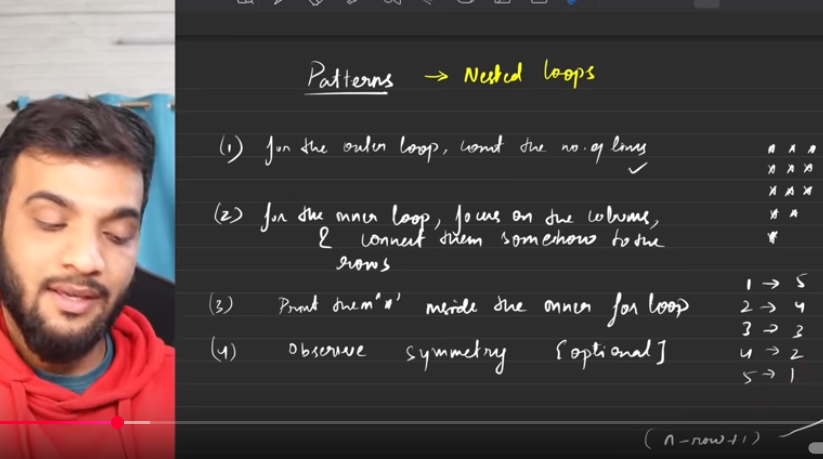 Patterns → Nested loops
(1) for the outer loop, count the no. of lines
(2) for the inner loop, focus on the columns,
& connect them somehow to the
rows
(3) Print them '*' inside the inner for loop
(4) Observe symmetry [optional]
* * *
* * *
* * *
* *
*
1 → 5
2 → 4
3 → 3
4 → 2
5 → 1
(n-row+1)